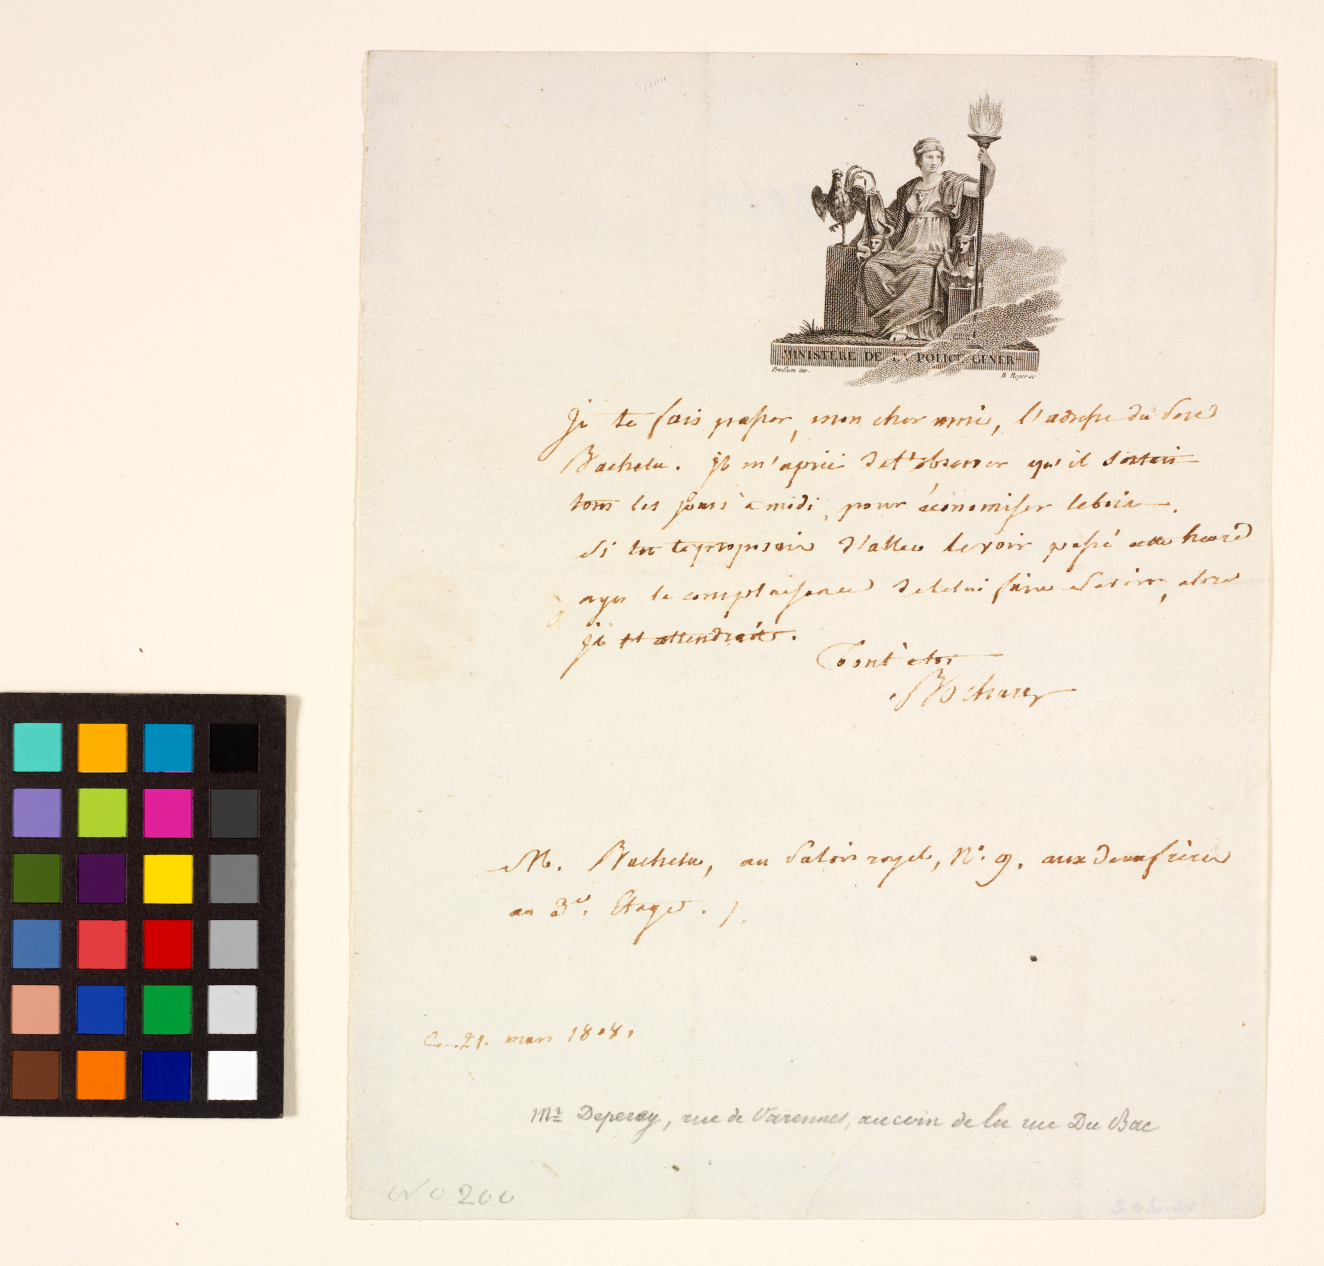 MINISTERE DE LA POLICE GENER
Prudhon inv.
B. Roger sc
Je te fais passer, mon cher ami, l'adresse du Sieur
Bachelu. Je m'a prié de t'observer qu'il sortait
tous les jours à midi, pour économiser le bois.
Si tu te proposais d'aller le voir passé cette heure
ayes la complaisance de le lui faire savoir, alors
je t'attendrait.
Tout à toi
M. Bachelu, au Palais royal, N.° 9. aux deux frères
au 3.e Etage.
Ce 21. mars 1808.
Mr Deperey, rue de Varennes, au coin de la rue Du Bac
No 200